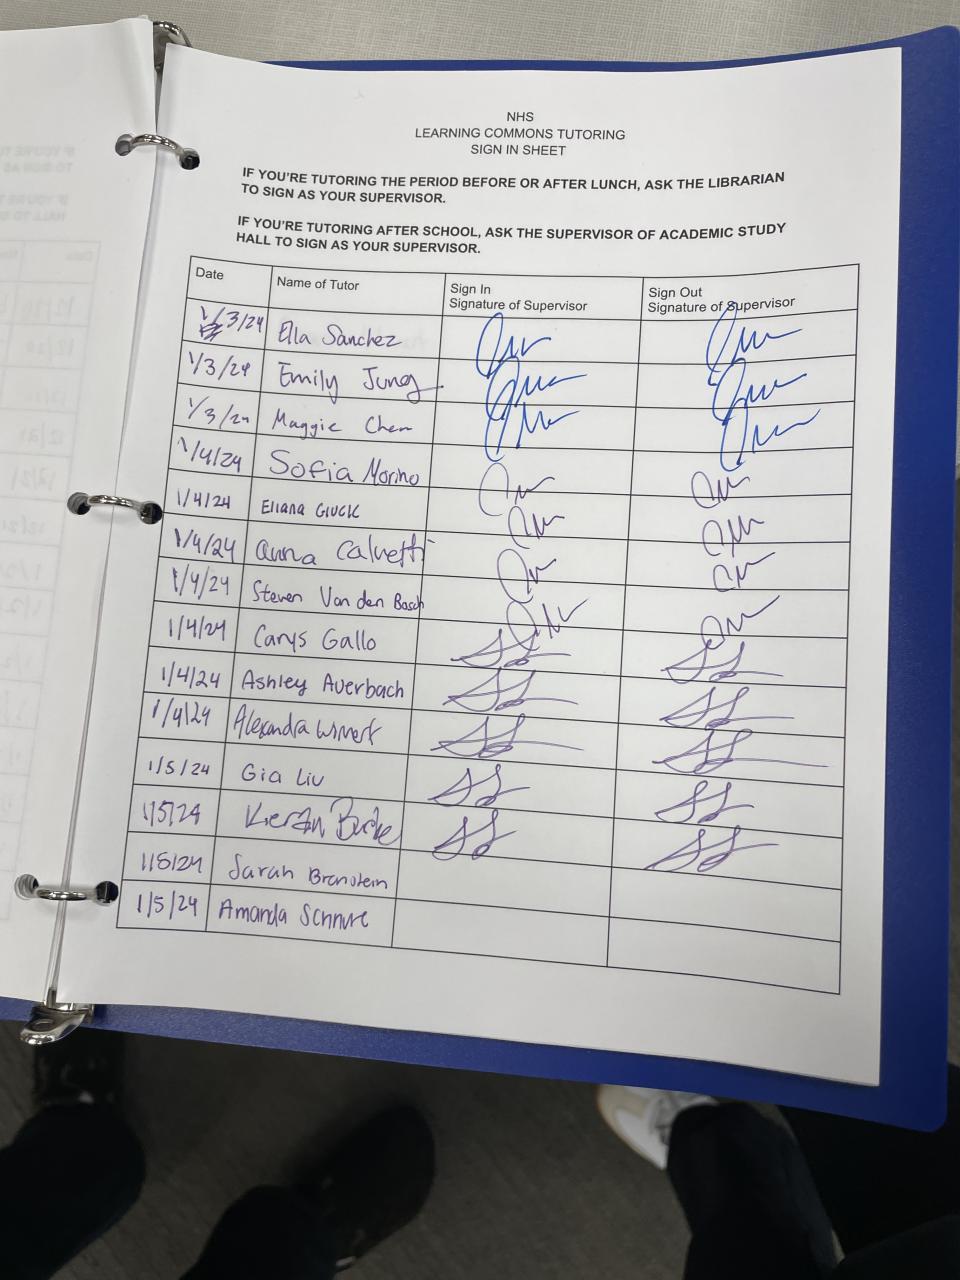 NHS
LEARNING COMMONS TUTORING
SIGN IN SHEET
IF YOU'RE TUTORING THE PERIOD BEFORE OR AFTER LUNCH, ASK THE LIBRARIAN
TO SIGN AS YOUR SUPERVISOR.
IF YOU'RE TUTORING AFTER SCHOOL, ASK THE SUPERVISOR OF ACADEMIC STUDY
HALL TO SIGN AS YOUR SUPERVISOR.
Date Name of Tutor Sign In Signature of Supervisor Sign Out Signature of Supervisor
1/3/24 Ella Sanchez
1/3/24 Emily Jung
1/3/24 Maggie Chen
1/4/24 Sofia Morino
1/4/24 Eliana Gluck
1/4/24 Anna Calvetti
1/4/24 Steven Van den Bosch
1/4/24 Carys Gallo
1/4/24 Ashley Auerbach
1/4/24 Alexandra
1/5/24 Gia Liu
1/5/24 Kieran Burke
1/5/24 Sarah
1/5/24 Amanda